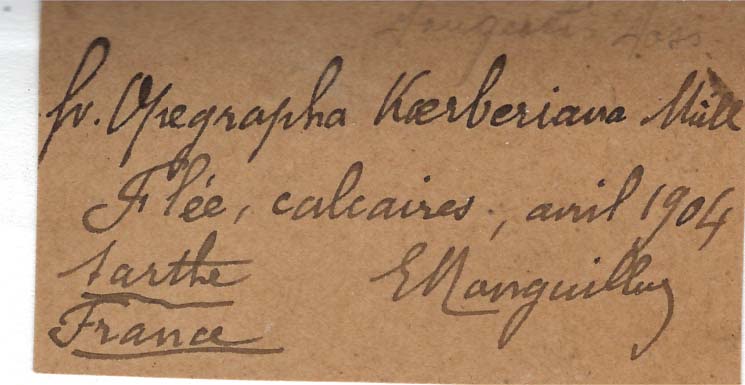 fv. Opegrapha Kœrberiana Müll
Flée, calcaires, avril 1904
Sarthe EMonguillon
France